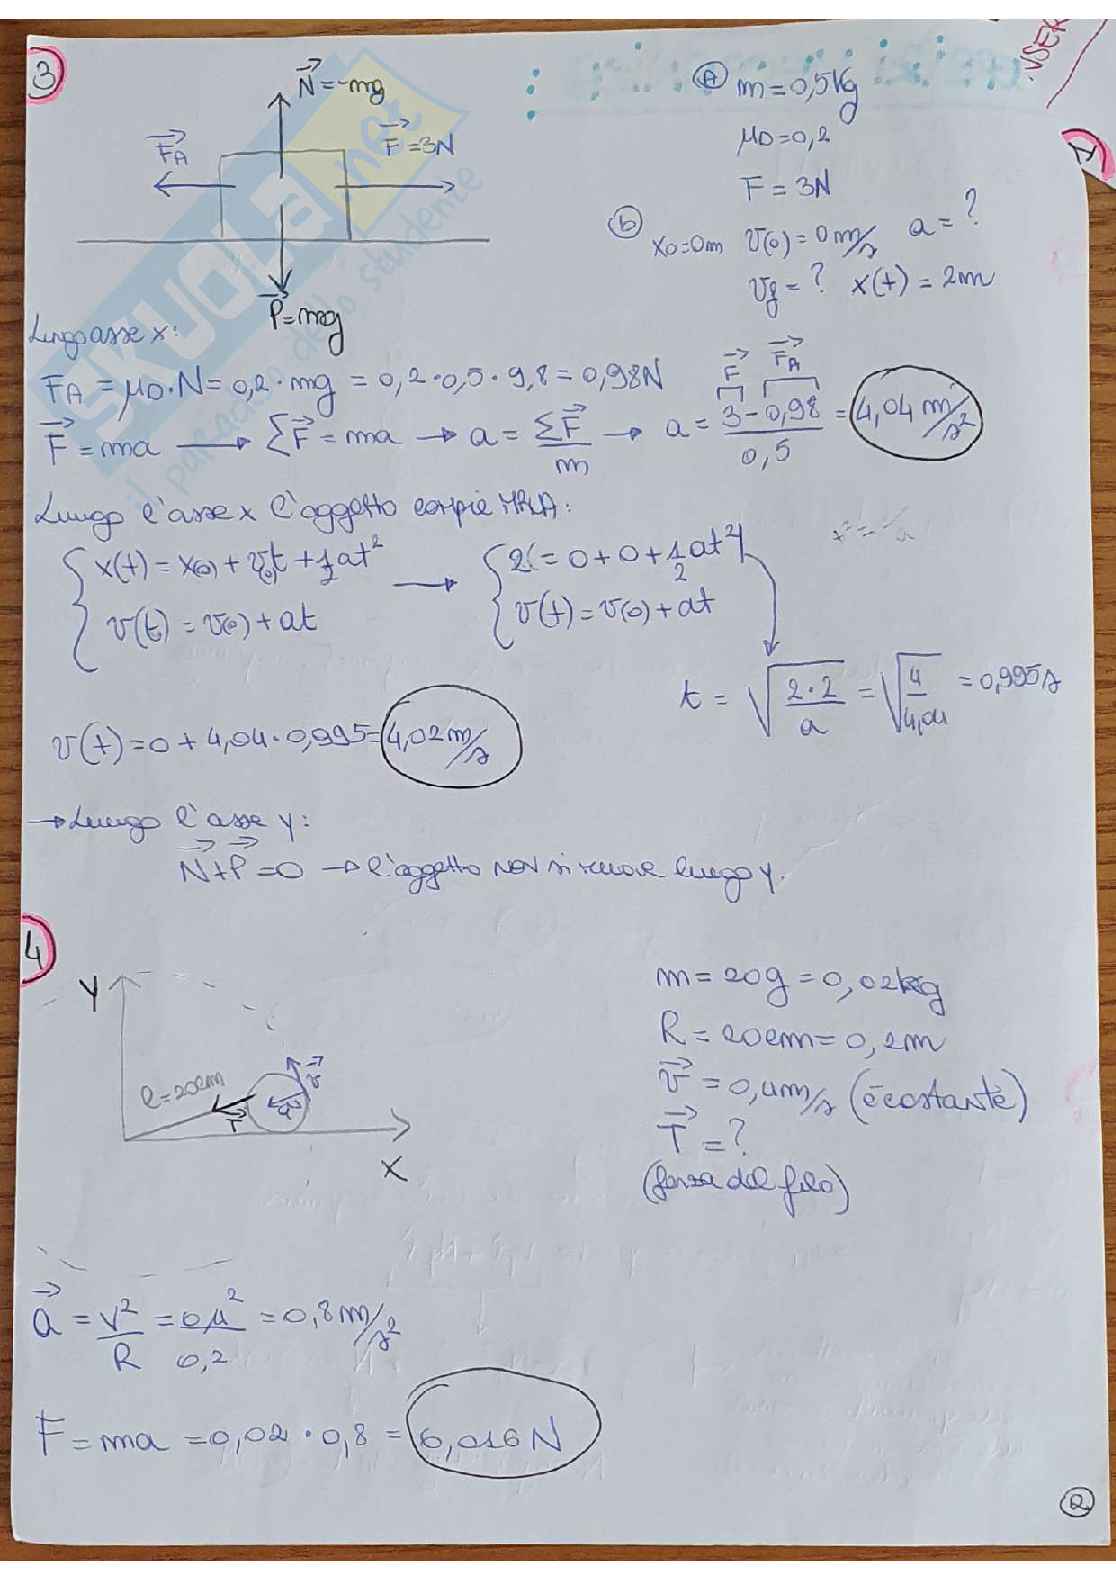 3
N = -mg
F_A
F = 3N
P = mg
a m = 0,5 Kg
μD = 0,2
F = 3N
b x0 = 0m v(0) = 0 m/s a = ?
vf = ? x(t) = 2m
Lungo asse x:
FA = μD · N = 0,2 · mg = 0,2 · 0,5 · 9,8 = 0,98N
F FA
F = ma → ΣF = ma → a = ΣF/m → a = (3 - 0,98)/0,5 = 4,04 m/s²
Lungo l'asse x l'oggetto compie MRUA:
x(t) = x(0) + v(0)t + 1/2 at² → 2 = 0 + 0 + 1/2 at²
v(t) = v(0) + at v(t) = v(0) + at
t = √(2·2/a) = √(4/4,04) = 0,995 s
v(t) = 0 + 4,04 · 0,995 = 4,02 m/s
→ Lungo l'asse y:
N + P = 0 → l'oggetto NON si muove lungo y.
4
y
l = 20cm
v
a
T
x
m = 20g = 0,02 kg
R = 20cm = 0,2m
v = 0,4 m/s (è costante)
T = ?
(forza del filo)
a = v²/R = 0,4²/0,2 = 0,8 m/s²
F = ma = 0,02 · 0,8 = 0,016 N
2
SKUOLA.net
il paradiso dello studente